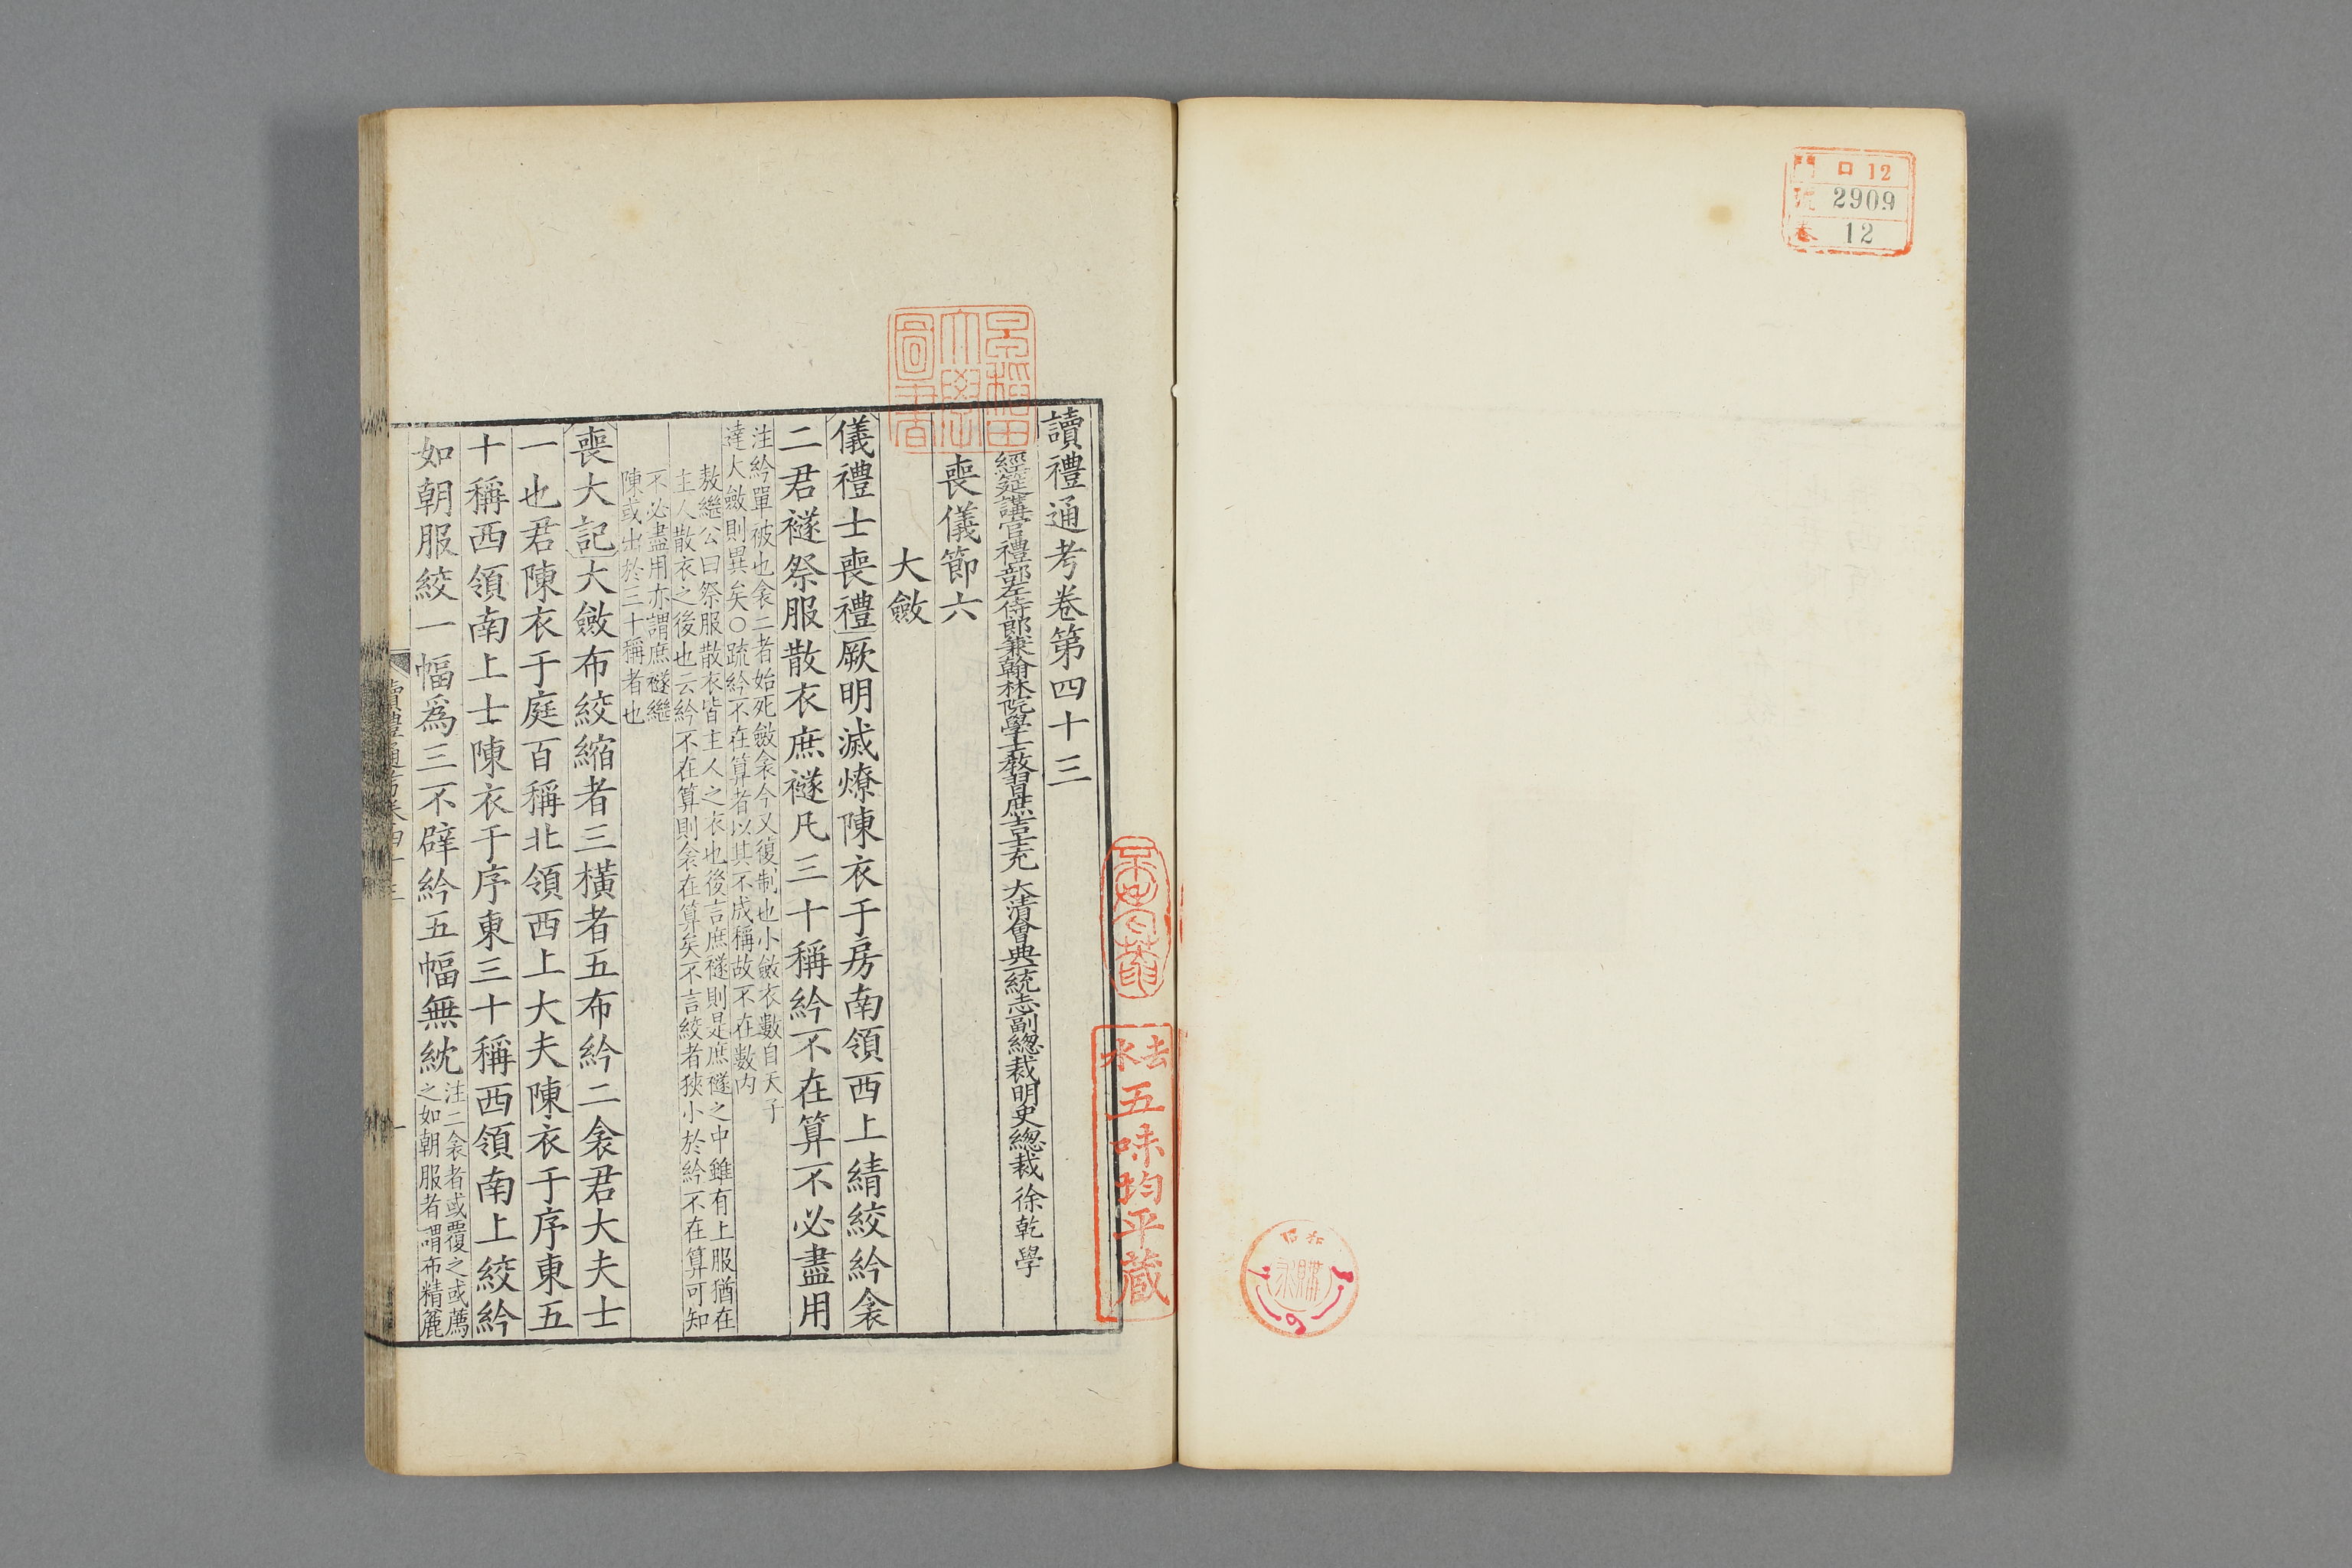 門 口 12
號 2909
卷 12
讀禮通考卷第四十三
經筵講官禮部左侍郎兼翰林院學士教習庶吉士充 大清會典一統志副總裁明史總裁 徐乾學
喪儀節六
大斂
儀禮士喪禮厥明滅燎陳衣于房南領西上綪絞紟衾
二君襚祭服散衣庶襚凡三十稱紟不在算不必盡用
注紟單被也衾二者始死斂衾今又復制也小斂衣數自天子
達大斂則異矣○疏紟不在算者以其不成稱故不在數內
敖繼公曰祭服散衣皆主人之衣也後言庶襚則是庶襚之中雖有上服猶在
主人散衣之後也云紟不在算則衾在算矣不言絞者狹小於紟不在算可知
不必盡用亦謂庶襚繼
陳或出於三十稱者也
喪大記大斂布絞縮者三橫者五布紟二衾君大夫士
一也君陳衣于庭百稱北領西上大夫陳衣于序東五
十稱西領南上士陳衣于序東三十稱西領南上絞紟
如朝服絞一幅爲三不辟紟五幅無紞
注二衾者或覆之或薦
之如朝服者謂布精麤
讀禮通考卷四十三
一
早稻田大學圖書
去水五味均平藏
購求